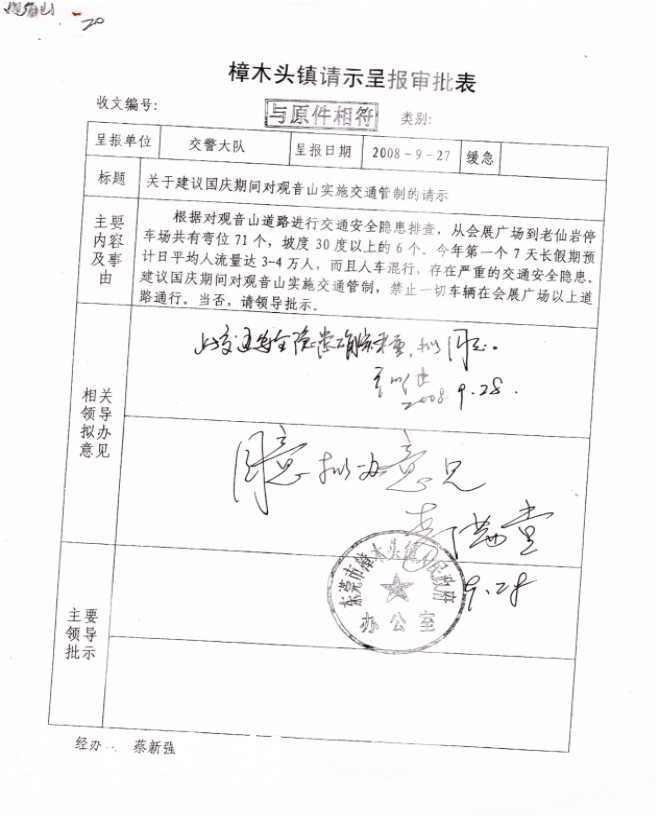 20
樟木头镇请示呈报审批表
收文编号:
与原件相符
类别:
呈报单位 交警大队 呈报日期 2008-9-27 缓急
标题 关于建议国庆期间对观音山实施交通管制的请示
主要内容及事由
根据对观音山道路进行交通安全隐患排查，从会展广场到老仙岩停
车场共有弯位71个，坡度30度以上的6个。今年第一个7天长假期预
计日平均人流量达3-4万人，而且人车混行，存在严重的交通安全隐患。
建议国庆期间对观音山实施交通管制，禁止一切车辆在会展广场以上道
路通行。当否，请领导批示。
相关领导拟办意见
2008.9.28.
同意拟办意见
9.28
东莞市樟木头镇人民政府
办公室
主要领导批示
经办 蔡新强